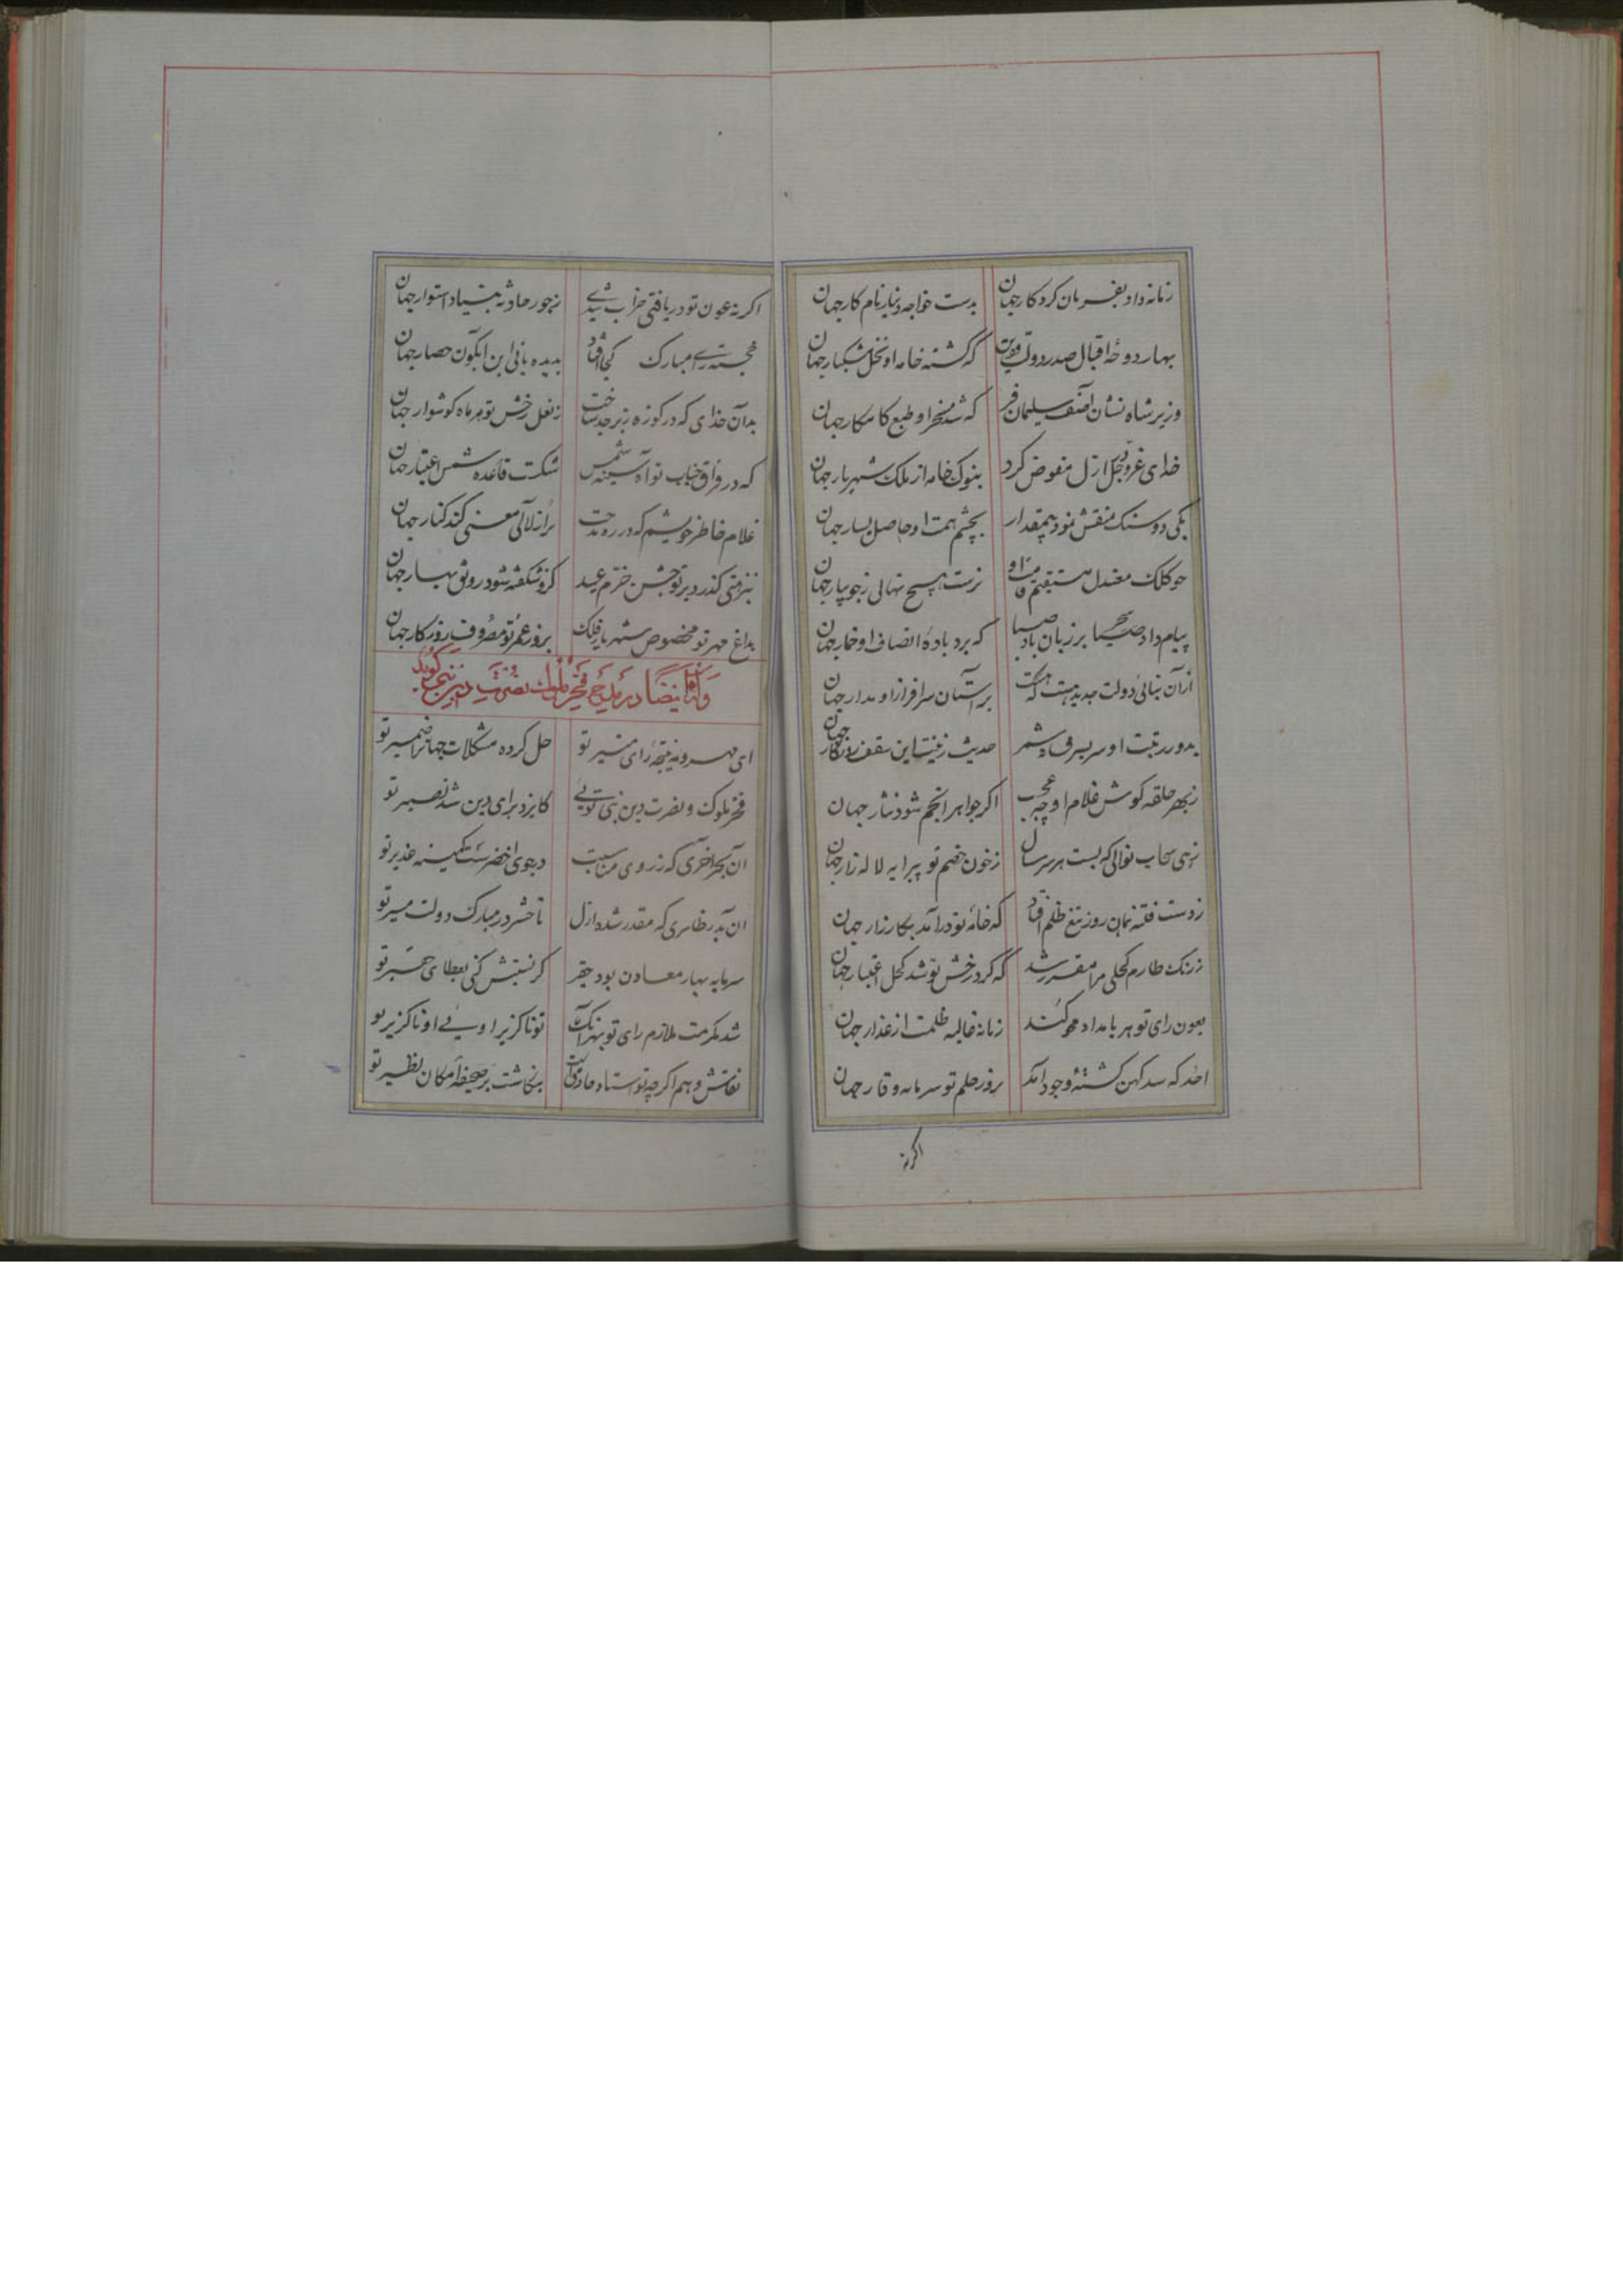 زمانه داد بفرمان کردکار جهان بدست خواجه دنیا زمام کار جهان
بهار دوحهٔ اقبال صدر دولت که گشته خامه او نخل مشکبار جهان
وزیر شاه نشان آصف سلیمان فر که شد مسخر او طبع کامکار جهان
خدای عزوجل از ازل مفوض کرد بنوک خامه از ملک شهریار جهان
یکی دو سنک منقش نمود بیمقدار بچشم همت او حاصل یسار جهان
چو کلک معتدل مستقیم قامت او نرست هیچ نهالی ز جویبار جهان
پیام داد مسیحا بر زبان باد صبا که برد باده انصاف او خمار جهان
از آن بنای دولت جدید هست که هست بر آستان سرافراز او مدار جهان
بدور رتبت او سربسر حدیث زینت این سقف زرنکار جهان
ز بهر حلقه کوش غلام او چه عجب اکر جواهر انجم شود نثار جهان
زهی سحاب نوالی که بست هر سر سال ز خون خصم تو پیرایه لاله زار جهان
ز دست فتنه همان روز تیغ ظلم افتاد که خامهٔ تو درآمد بکارزار جهان
ز رنک طارم کحلی مرا مقرر شد که کرد رخش تو شد کحل اعتبار جهان
بعون رای تو هر بامداد محو کند زمانه غالیه ظلمت از عذار جهان
احد که سد کهن کشتهٔ وجود آمد بروز حلم تو سرمایه وقار جهان
اکرنه
اکر نه عون تو دریافتی خراب شدی ز جور حادثه بنیاد استوار جهان
خجسته رای مبارک کجا افتاد بدیده بانی این آبکون حصار جهان
بدان خدای که در کوزه زبرجد ساخت ز نعل رخش تو هر ماه کوشوار جهان
که در فراق جناب تو آه سینه شمس شکست قاعده شمس اعتبار جهان
غلام خاطر خویشم که در ره مدحت پر از لآلی معنی کند کنار جهان
بنزهتی کذرد بر تو جشن خرم عید کزو شکفته شود رونق بهار جهان
بداغ مهر تو مخصوص شهریار فلک بروز عمر تو مصروف روزکار جهان
وله ایضا در مدح فخر ملوک نصرت دین نبی کوید
ای مهر و مه نتیجهٔ رای منیر تو حل کرده مشکلات جهانرا ضمیر تو
فخر ملوک و نصرت دین نبی توئی کایزد برای دین شد نصیر تو
آن بحر آخری که ز روی مناسبت دریای اخضرست کمینه غدیر تو
آن بدر طاهری که مقدر شد از ازل تا حشر در مبارک دولت مسیر تو
سرمایه بهار معادن بود حقیر کر نسبتش کنی بعطای حقیر تو
شد مکرمت ملازم رای تو بهر آنک تو ناکزیر او شی و او ناکزیر تو
نقاش وهم اکرچه تو استاد حاذقیست ننکاشت بر صحیفهٔ امکان نظیر تو